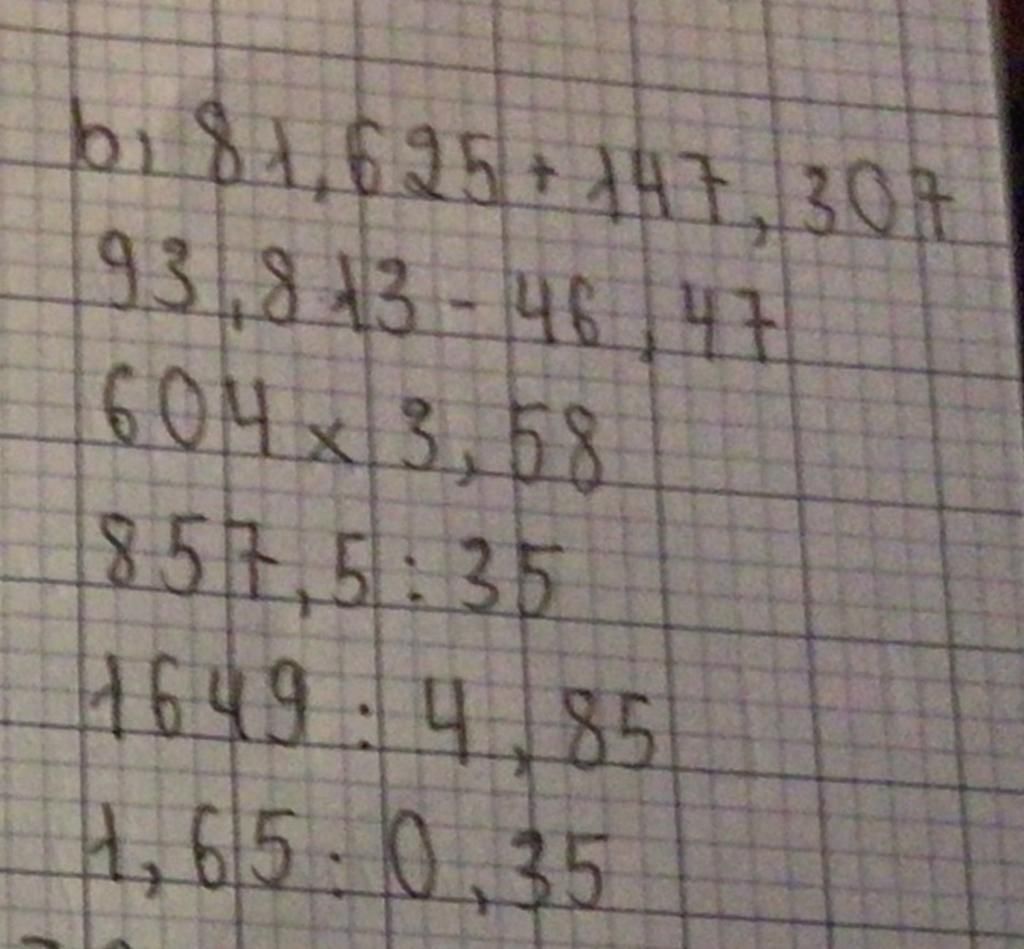 b, 81,625 + 147,307
93,813 - 46,47
604 x 3,58
857,5 : 35
1649 : 4,85
1,65 : 0,35